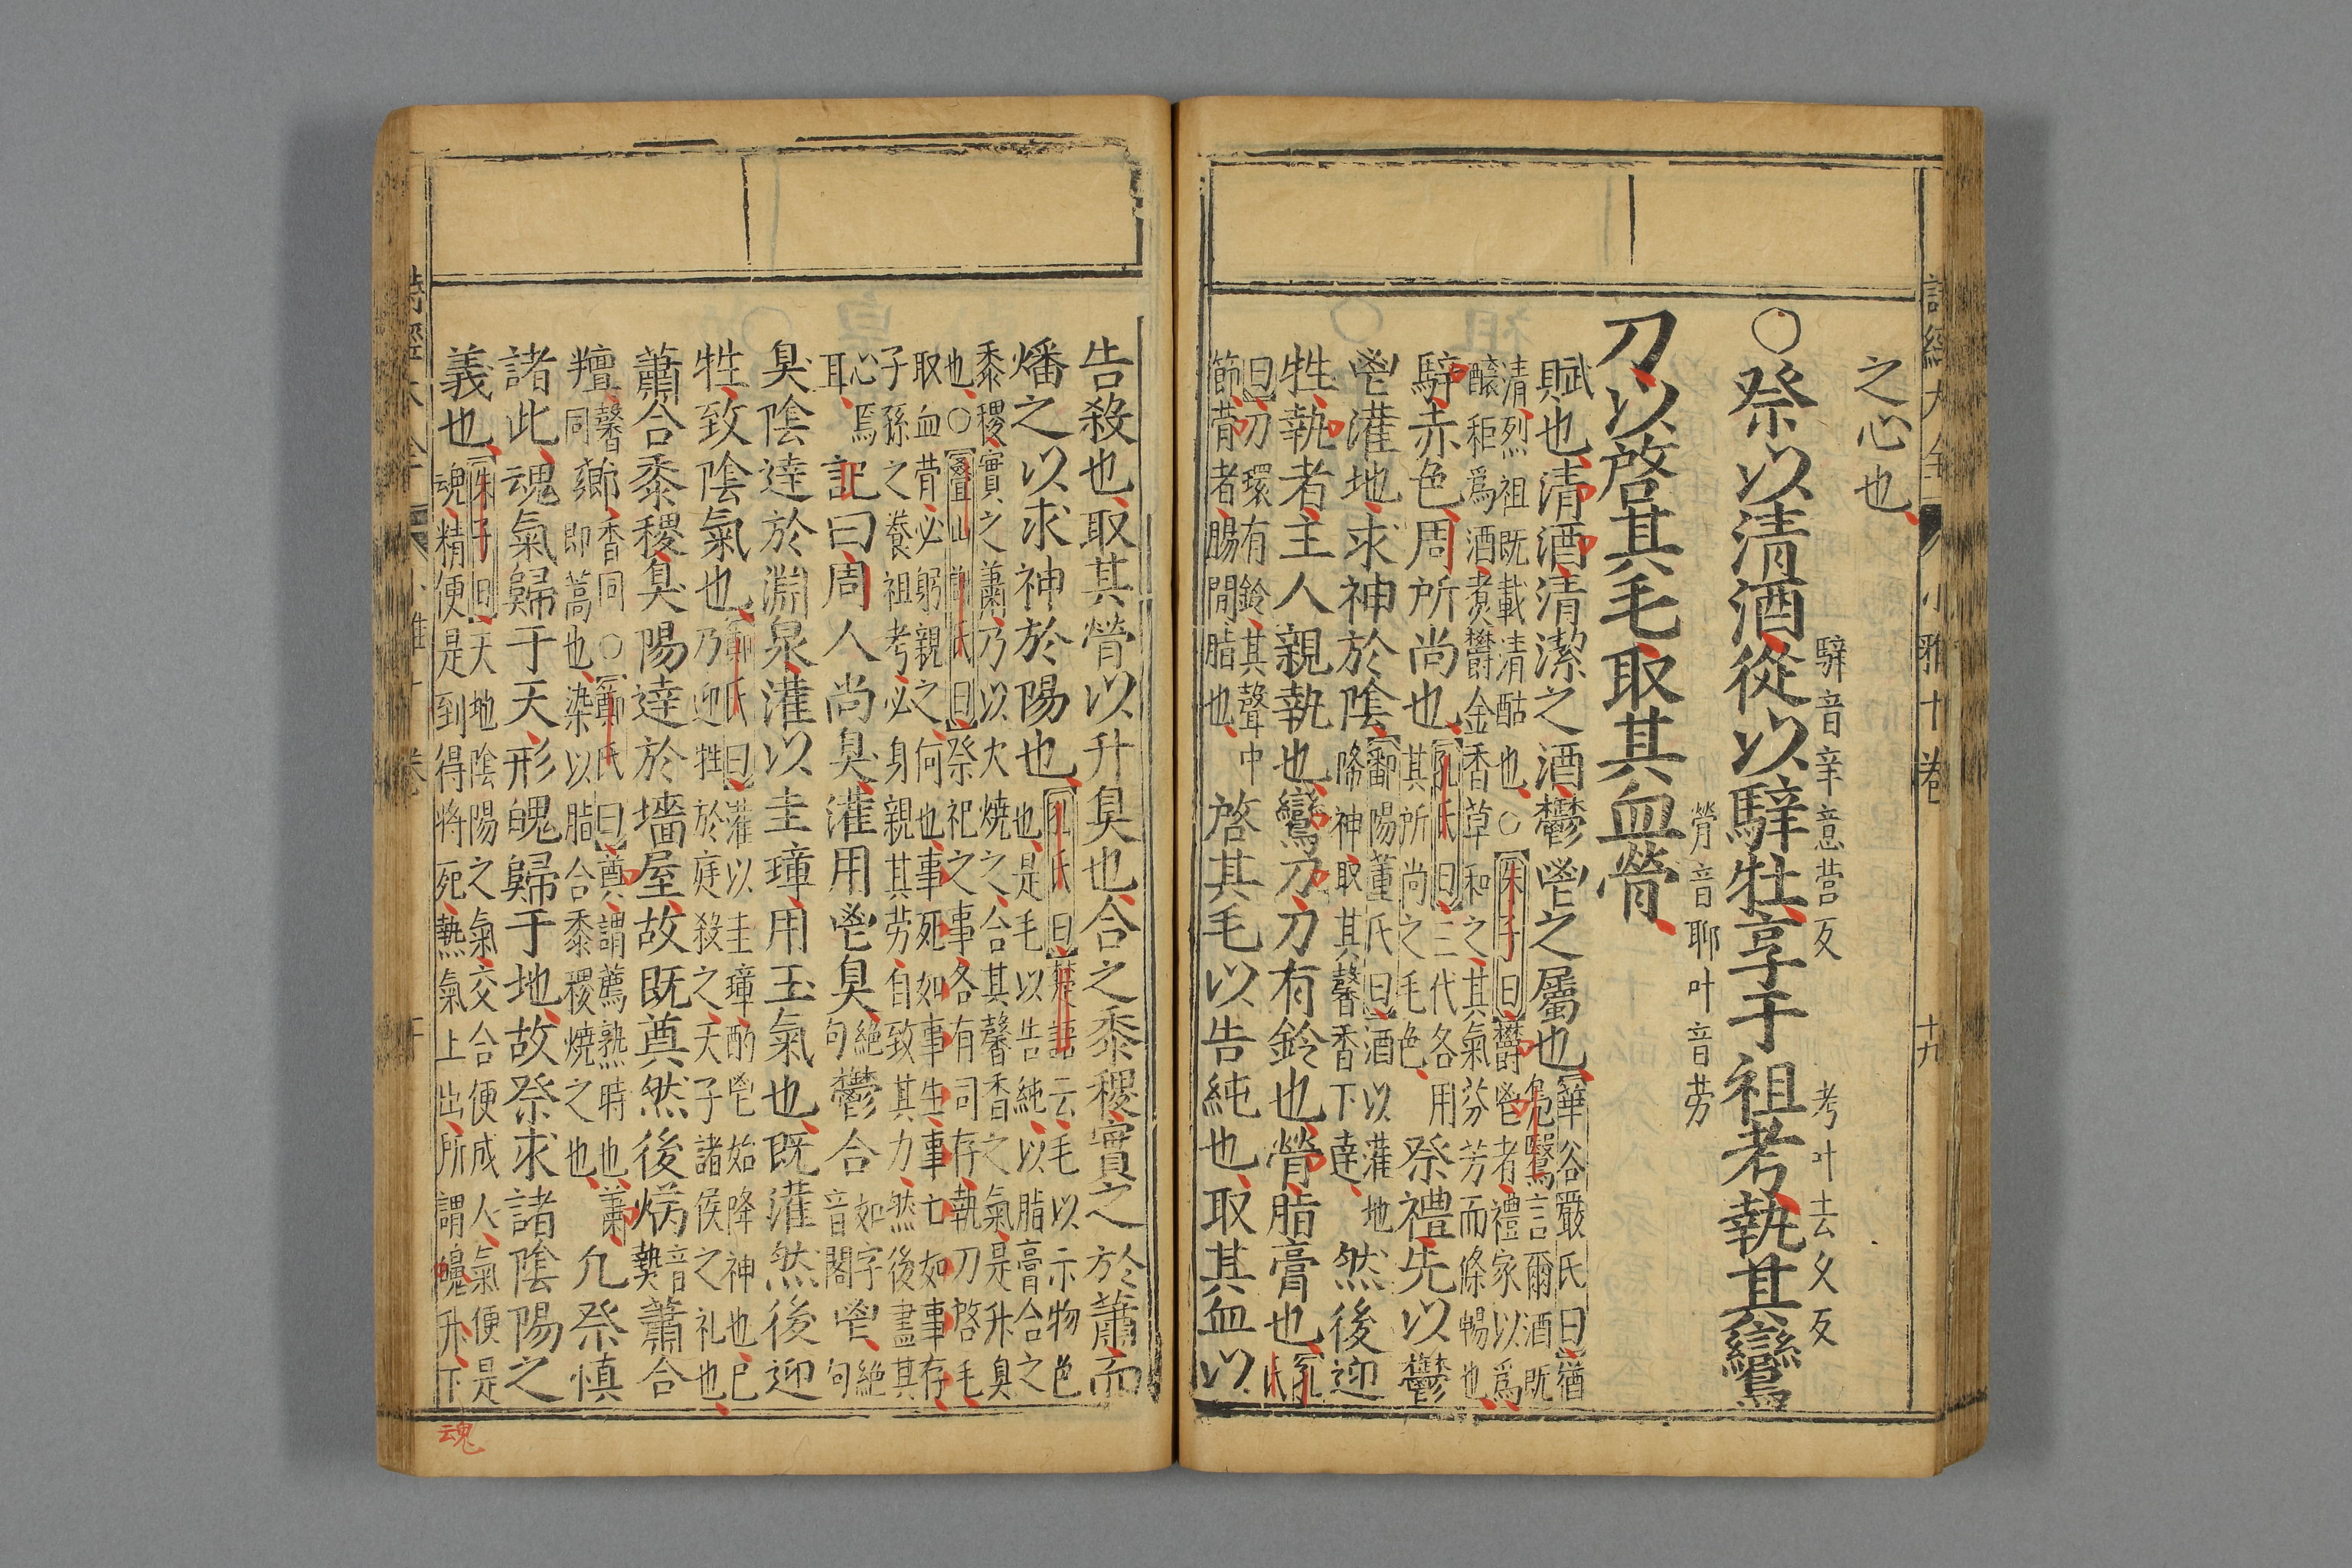 詩經大全 小雅十卷 十九
之心也
○祭以清酒從以騂牡騂音辛意营反享于祖考考叶去久反執其鸞
刀以啓其毛取其血膋膋音聊叶音劳
賦也清酒清潔之酒鬱鬯之屬也華谷嚴氏曰猶凫鷖言爾酒既
清烈祖既載清酤也○朱子曰鬱鬯者禮家以爲
釀秬爲酒煮鬱金香草和之其氣芬芳而條暢也
騂赤色周所尚也孔氏曰三代各用其所尚之毛色祭禮先以鬱
鬯灌地求神於陰鄱陽董氏曰酒以灌地降神取其馨香下達然後迎
牲執者主人親執也鸞刀刀有鈴也膋脂膏也孔氏
曰刀環有鈴其聲中節膋者腸間脂也啓其毛以告純也取其血以
告殺也取其膋以升臭也合之黍稷實之於蕭而
燔之以求神於陽也孔氏曰楚語云毛以示物色也是毛以告純以脂膏合之
黍稷實之蕭乃以火燒之合其馨香之氣是升臭
也○疊山謝氏曰祭祀之事各有司存執刀啓毛
取血膋必躬親之何也事死如事生事亡如事存
子孫之養祖考必身親其劳自致其力然後盡其
心焉耳記曰周人尚臭灌用鬯臭絕句鬱合如字音閤鬯絕句
臭陰達於淵泉灌以圭璋用玉氣也既灌然後迎
牲致陰氣也鄭氏曰灌以圭璋酌鬯始降神也已乃迎牲於庭殺之天子諸侯之礼也
蕭合黍稷臭陽達於墻屋故既奠然後焫音爇蕭合
羶馨同薌香同○鄭氏曰奠謂薦熟時也蕭即蒿也染以脂合黍稷燒之也凡祭慎
諸此魂氣歸于天形魄歸于地故祭求諸陰陽之
義也朱子曰天地陰陽之氣交合便成人氣便是
魂精便是到得將死熱氣上出所謂䰟升下
魂